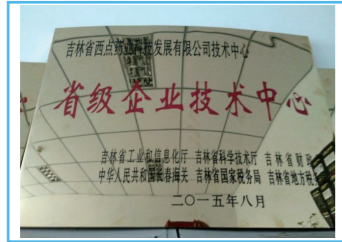 吉林省西点药业科技发展有限公司技术中心
省级企业技术中心
吉林省工业和信息化厅 吉林省科学技术厅 吉林省财政
中华人民共和国长春海关 吉林省国家税务局 吉林省地方税务
二〇一五年八月